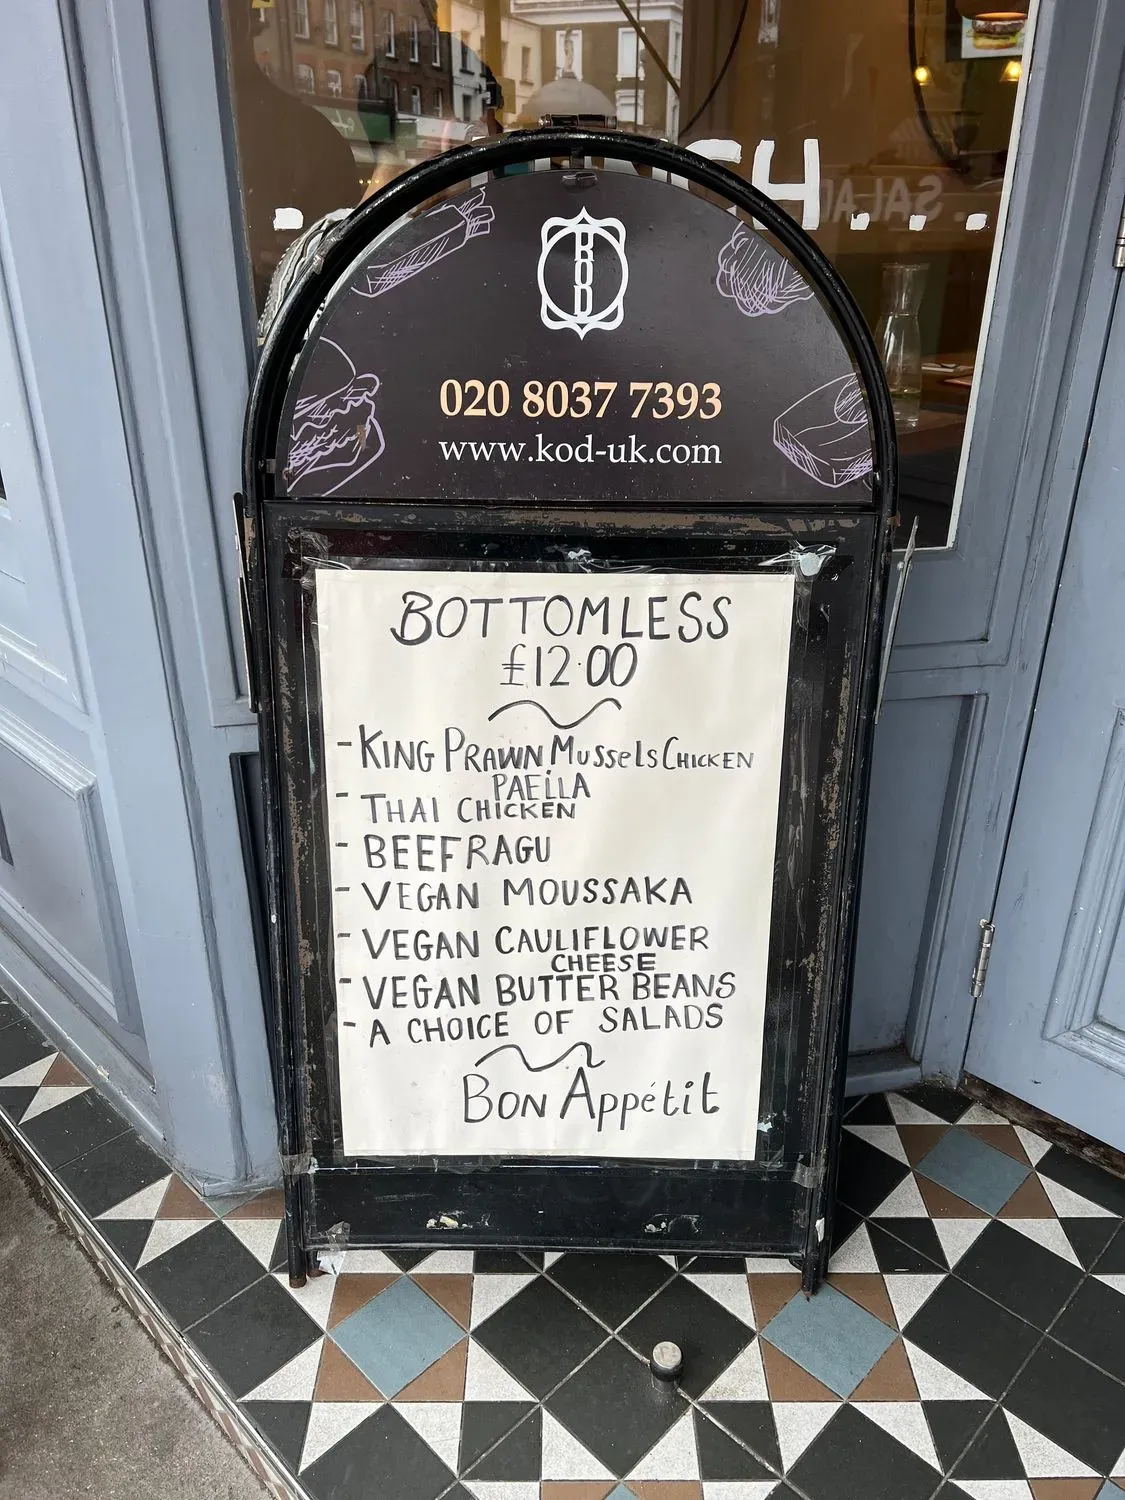 KOD
020 8037 7393
www.kod-uk.com
BOTTOMLESS
£12.00
- KING PRAWN MUSSELS CHICKEN
PAELLA
- THAI CHICKEN
- BEEF RAGU
- VEGAN MOUSSAKA
- VEGAN CAULIFLOWER
CHEESE
- VEGAN BUTTER BEANS
- A CHOICE OF SALADS
BON APPétit